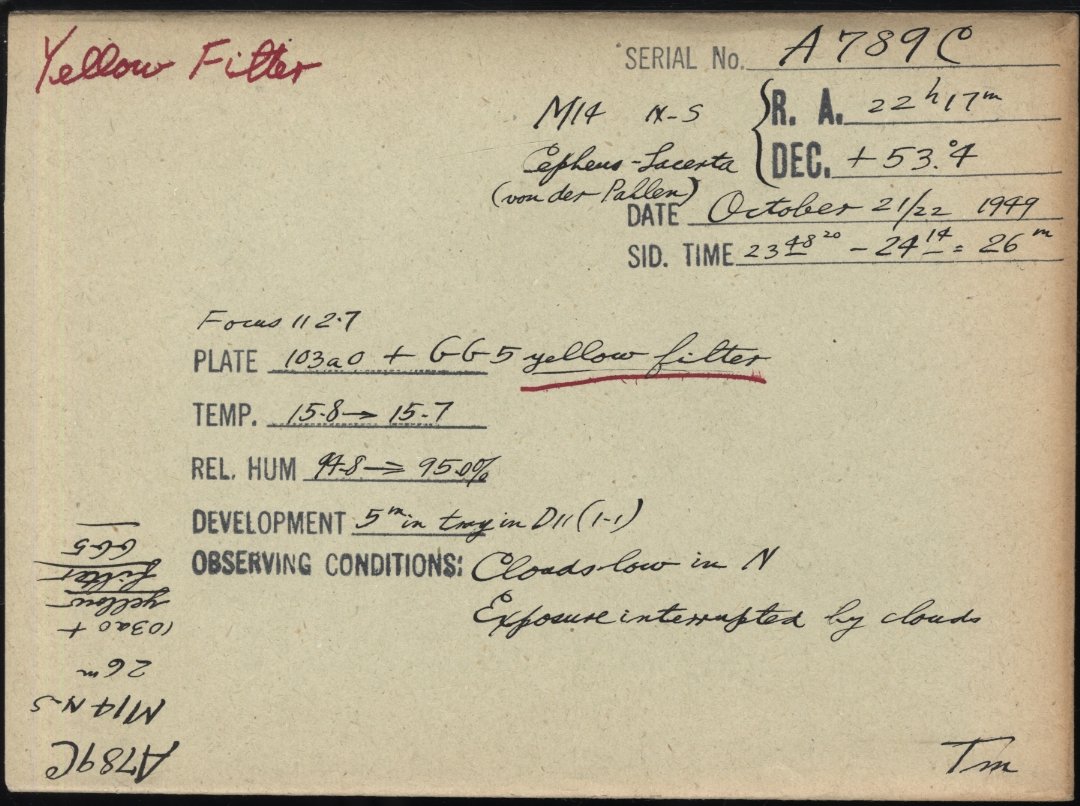 Yellow Filter
SERIAL No. A789C
M14 N-S
R. A. 22h 17m
Cepheus-Lacerta
DEC. +53.°4
(von der Pahlen)
DATE October 21/22 1949
SID. TIME 23 48 20 - 24 14 = 26m
Focus 112.7
PLATE 103a0 + GG5 yellow filter
TEMP. 15.8 → 15.7
REL. HUM 94.8 → 95.0%
DEVELOPMENT 5m in tray in D11 (1-1)
OBSERVING CONDITIONS: Clouds low in N
Exposure interrupted by clouds
Tm
A789C
M14 N-S
26m
103a0 +
yellow
filter
GG5